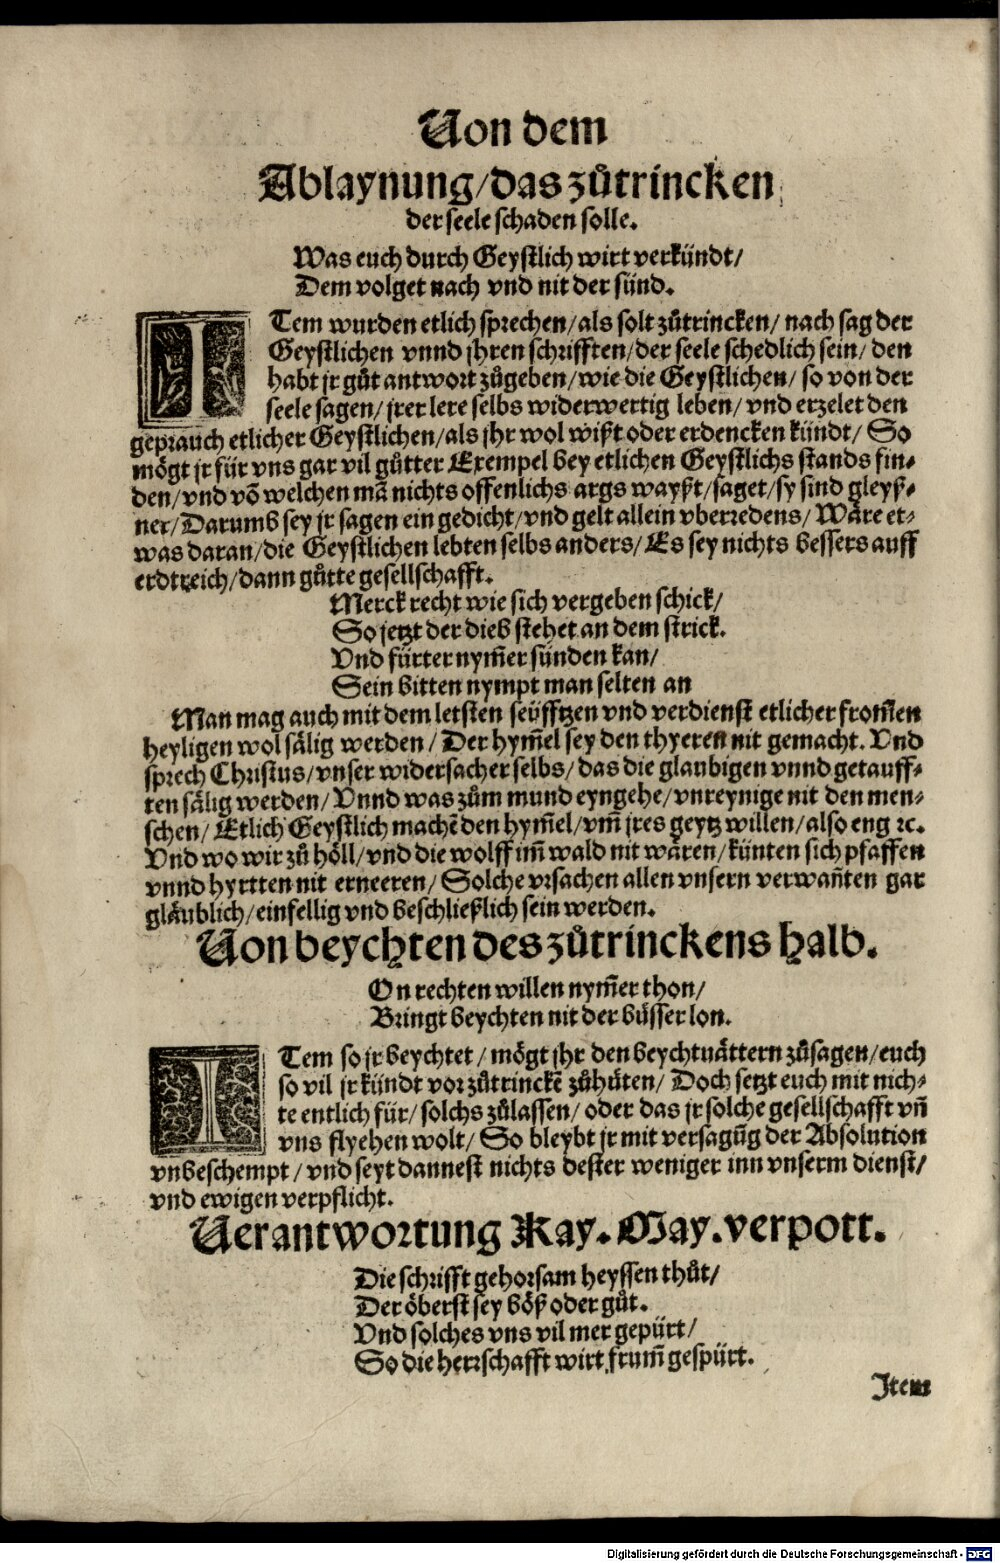 Von dem
Ablaynung/das zůtrincken
der seele schaden solle.
Was euch durch Geystlich wirt verkündt/
Dem volget nach vnd nit der sünd.
ITem wurden etlich sprechen/als solt zůtrincken/ nach sag der
Geystlichen vnnd jhren schrifften/der seele schedlich sein/den
habt jr gůt antwort zůgeben/wie die Geystlichen/ so von der
seele sagen/jrer lere selbs widerwertig leben/vnd erzelet den
geprauch etlicher Geystlichen/als jhr wol wißt oder erdencken kündt/ So
mögt jr für vns gar vil gůtter Exempel bey etlichen Geystlichs stands fin⸗
den/vnd võ welchen mã nichts offenlichs args wayßt/saget/sy sind gleyß⸗
ner/Darumb sey jr sagen ein gedicht/vnd gelt allein vberredens/ Wäre et⸗
was daran/die Geystlichen lebten selbs anders/Es sey nichts bessers auff
erdtreich/dann gůtte gesellschafft.
Merck recht wie sich vergeben schick/
So jetzt der dieb stehet an dem strick.
Vnd fürter nym̃er sünden kan/
Sein bitten nympt man selten an
Man mag auch mit dem letsten seüfftzen vnd verdienst etlicher from̃en
heyligen wol sälig werden/Der hym̃el sey den thyeren nit gemacht. Vnd
sprech Christus/vnser widersacher selbs/das die glaubigen vnnd getauff⸗
ten sälig werden/Vnnd was zům mund eyngehe/vnreynige nit den men⸗
schen/Etlich Geystlich machẽ den hym̃el/vm̃ jres geytz willen/also eng ꝛc.
Vnd wo wir zů höll/vnd die wolff im̃ wald nit wären/künten sich pfaffen
vnnd hyrtten nit erneeren/Solche vrsachen allen vnsern verwañten gar
gläublich/einfellig vnd beschließlich sein werden.
Von beychten des zůtrinckens halb.
On rechten willen nym̃er thon/
Bringt beychten nit der büsser lon.
ITem so jr beychtet/mögt jhr den beychtuättern zůsagen/euch
so vil jr kündt vor zůtrinckẽ zůhüten/Doch setzt euch mit nich⸗
te entlich für/solchs zůlassen/oder das jr solche gesellschafft vñ
vns flyehen wolt/So bleybt jr mit versagũg der Absolution
vnbeschempt/vnd seyt dannest nichts dester weniger inn vnserm dienst/
vnd ewigen verpflicht.
Verantwortung Kay. May. verpott.
Die schrifft gehorsam heyssen thůt/
Der öberst sey böß oder gůt.
Vnd solches vns vil mer gepürt/
So die herrschafft wirt frum̃ gespürt.
Item
Digitalisierung gefördert durch die Deutsche Forschungsgemeinschaft - DFG